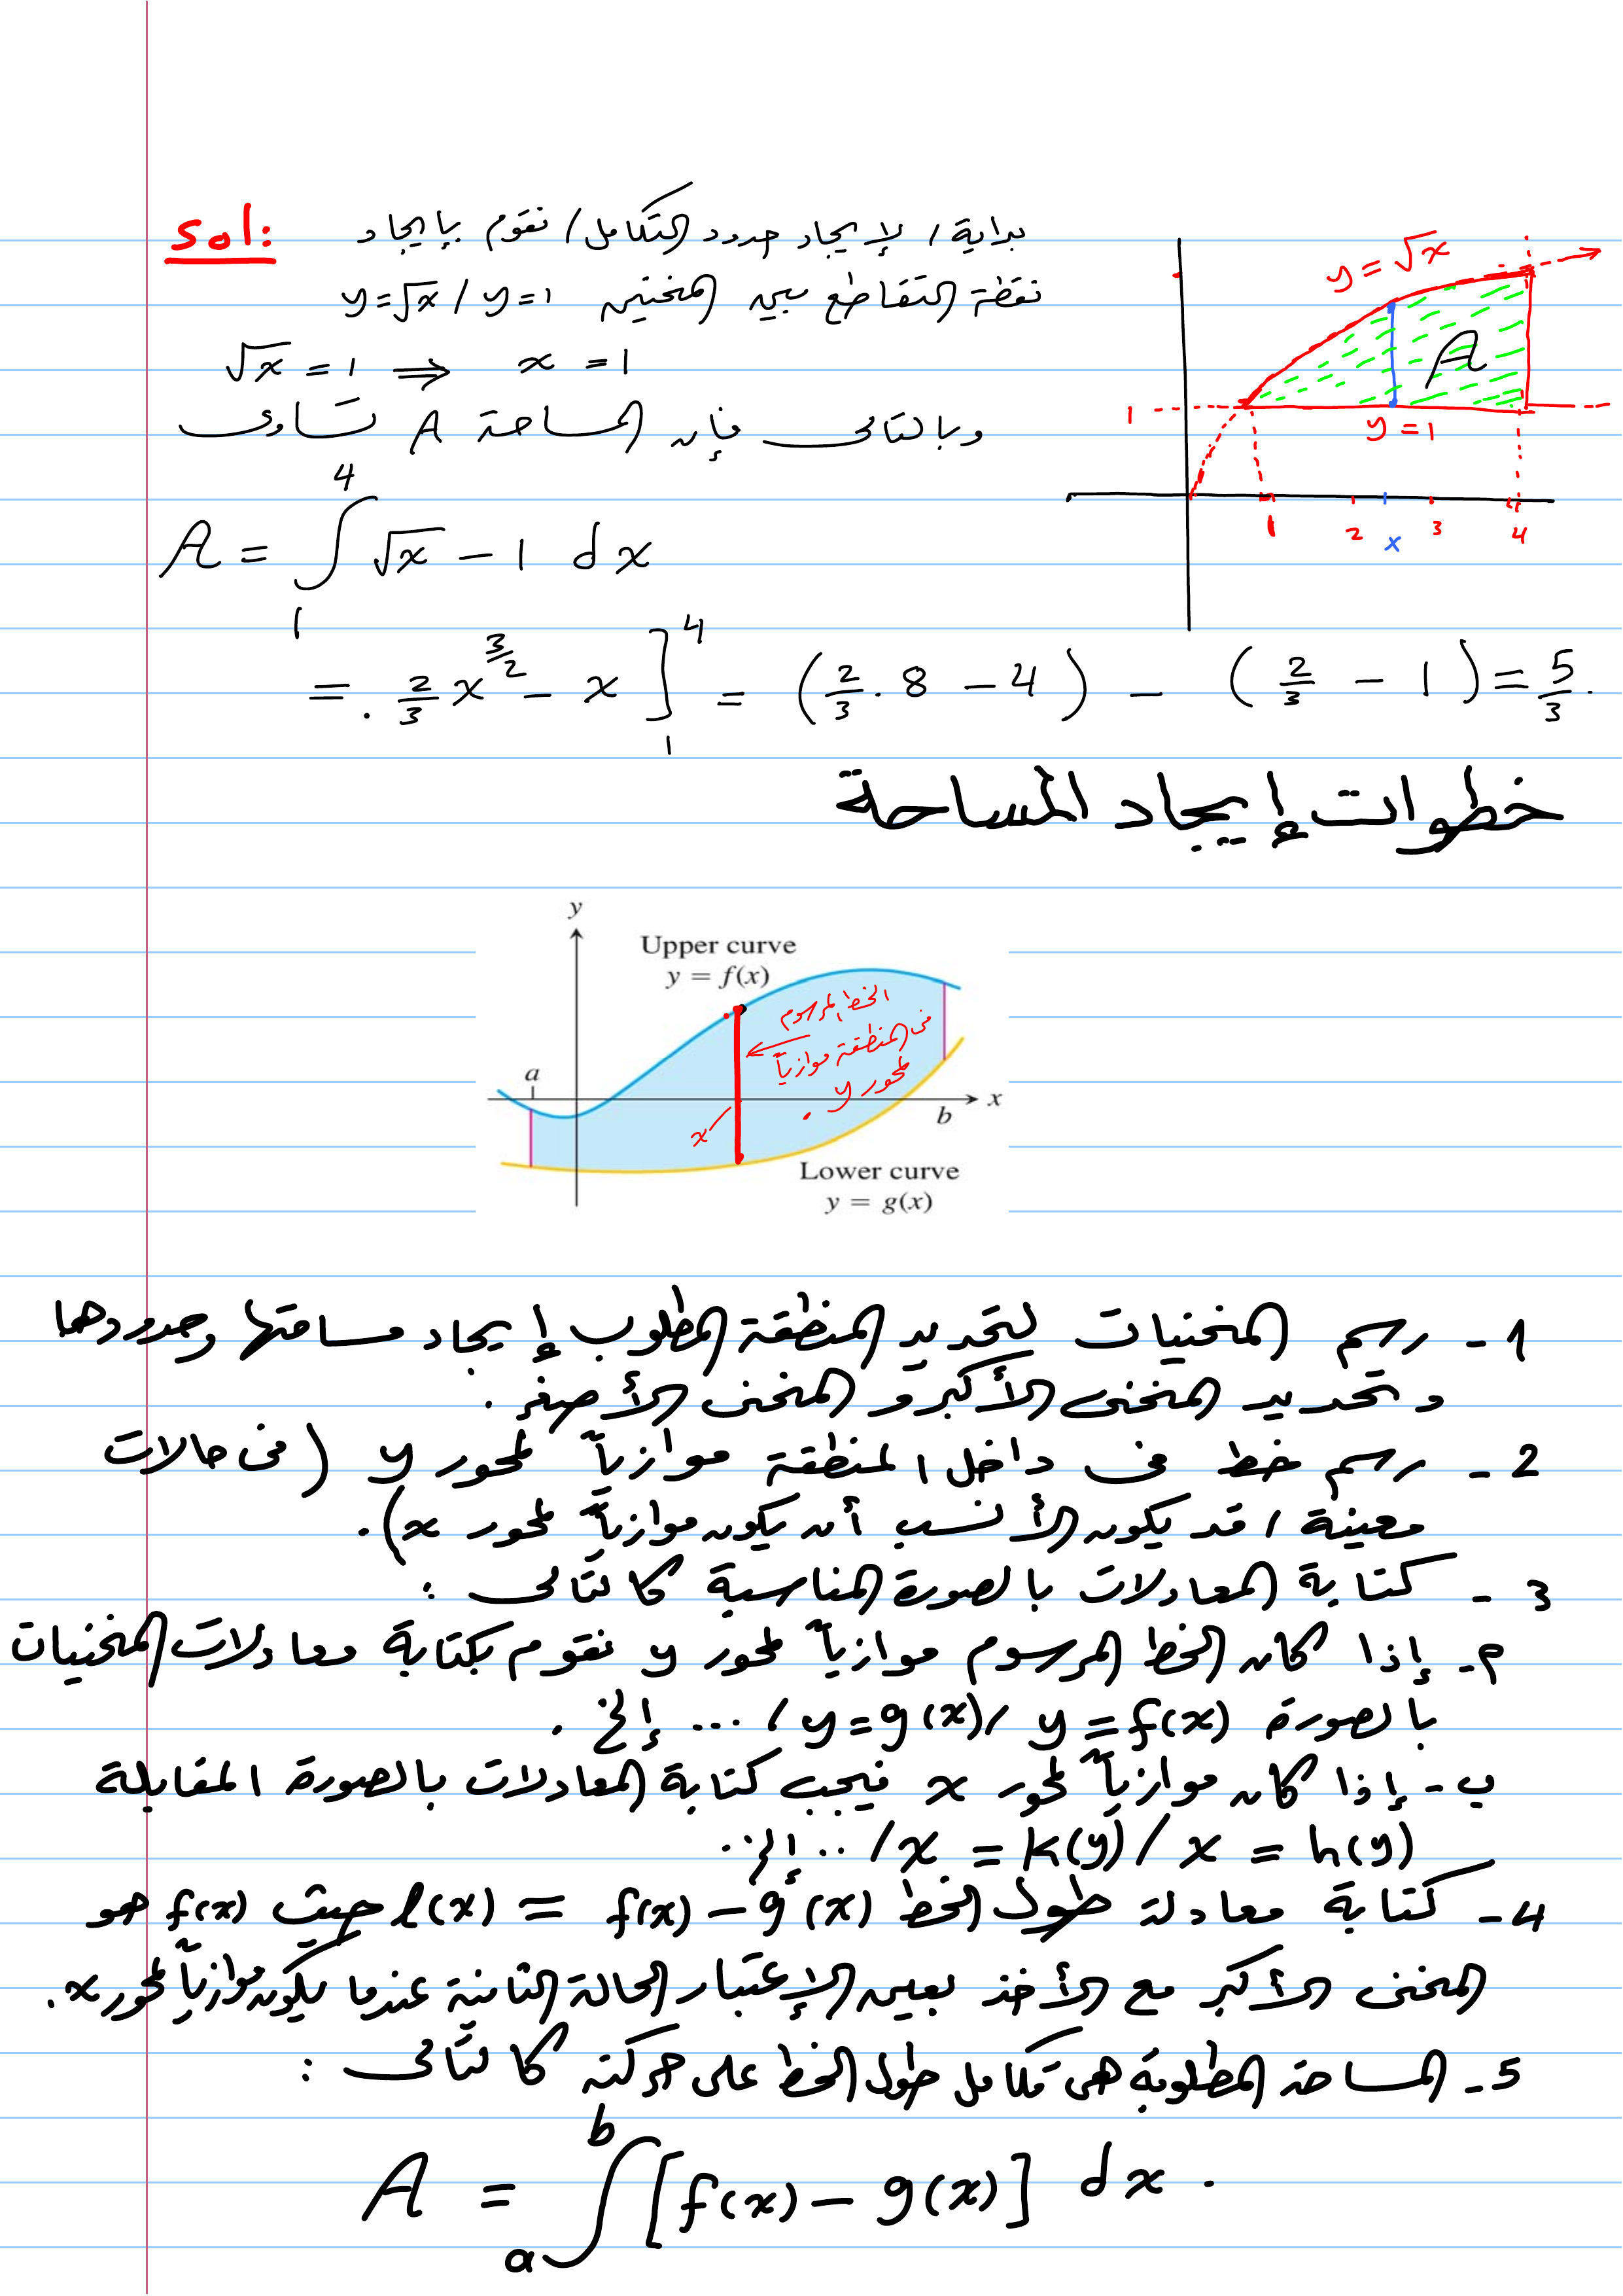 sol:
بداية، لإيجاد حدود التكامل، نقوم بإيجاد
نقطة التقاطع بين المنحنيين y=√x , y=1
√x = 1 ⇒ x = 1
وبالتالى فإن المساحة A تساوى
A = ∫₁⁴ √x − 1 dx
= 2/3 x^(3/2) − x ]₁⁴ = (2/3 · 8 − 4) − (2/3 − 1) = 5/3.
y = √x
A
1
y = 1
1 2 x 3 4
خطوات إيجاد المساحة
y
Upper curve
y = f(x)
الخط المرسوم
فى المنطقة موازياً
لمحور y.
a
x
b
x
Lower curve
y = g(x)
1- رسم المنحنيات لتحديد المنطقة المطلوب إيجاد مساحتها وحدودها
وتحديد المنحنى الأكبر و المنحنى الأصغر.
2- رسم خط فى داخل المنطقة موازياً لمحور y (فى حالات
معينة، قد يكون الأنسب أن يكون موازياً لمحور x).
3- كتابة المعادلات بالصورة المناسبة كالتالى:
أ- إذا كان الخط المرسوم موازياً لمحور y نقوم بكتابة معادلات المنحنيات
بالصورة y = f(x), y=g(x), ... إلخ.
ب- إذا كان موازياً لمحور x فيجب كتابة المعادلات بالصورة المقابلة
x = h(y), x = k(y), ... إلخ.
4- كتابة معادلة طول الخط l(x) = f(x) − g(x) حيث f(x) هو
المنحنى الأكبر مع الأخذ بعين الإعتبار الحالة الثانية عندما يكون موازياً لمحور x.
5- المساحة المطلوبة هى تكامل طول الخط على حركته كالتالى:
A = ∫ₐᵇ [f(x) − g(x)] dx.